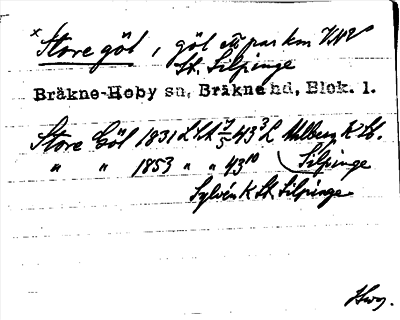 x Store göl, göl ett par km VNV
St. Silpinge
Bräkne-Hoby sn, Bräkne hd, Blek. l.
Store Göl 1831 LSA 43 3 L K St.
" " 1853 " " 43 10 Silpinge
Sylvén K St. Silpinge